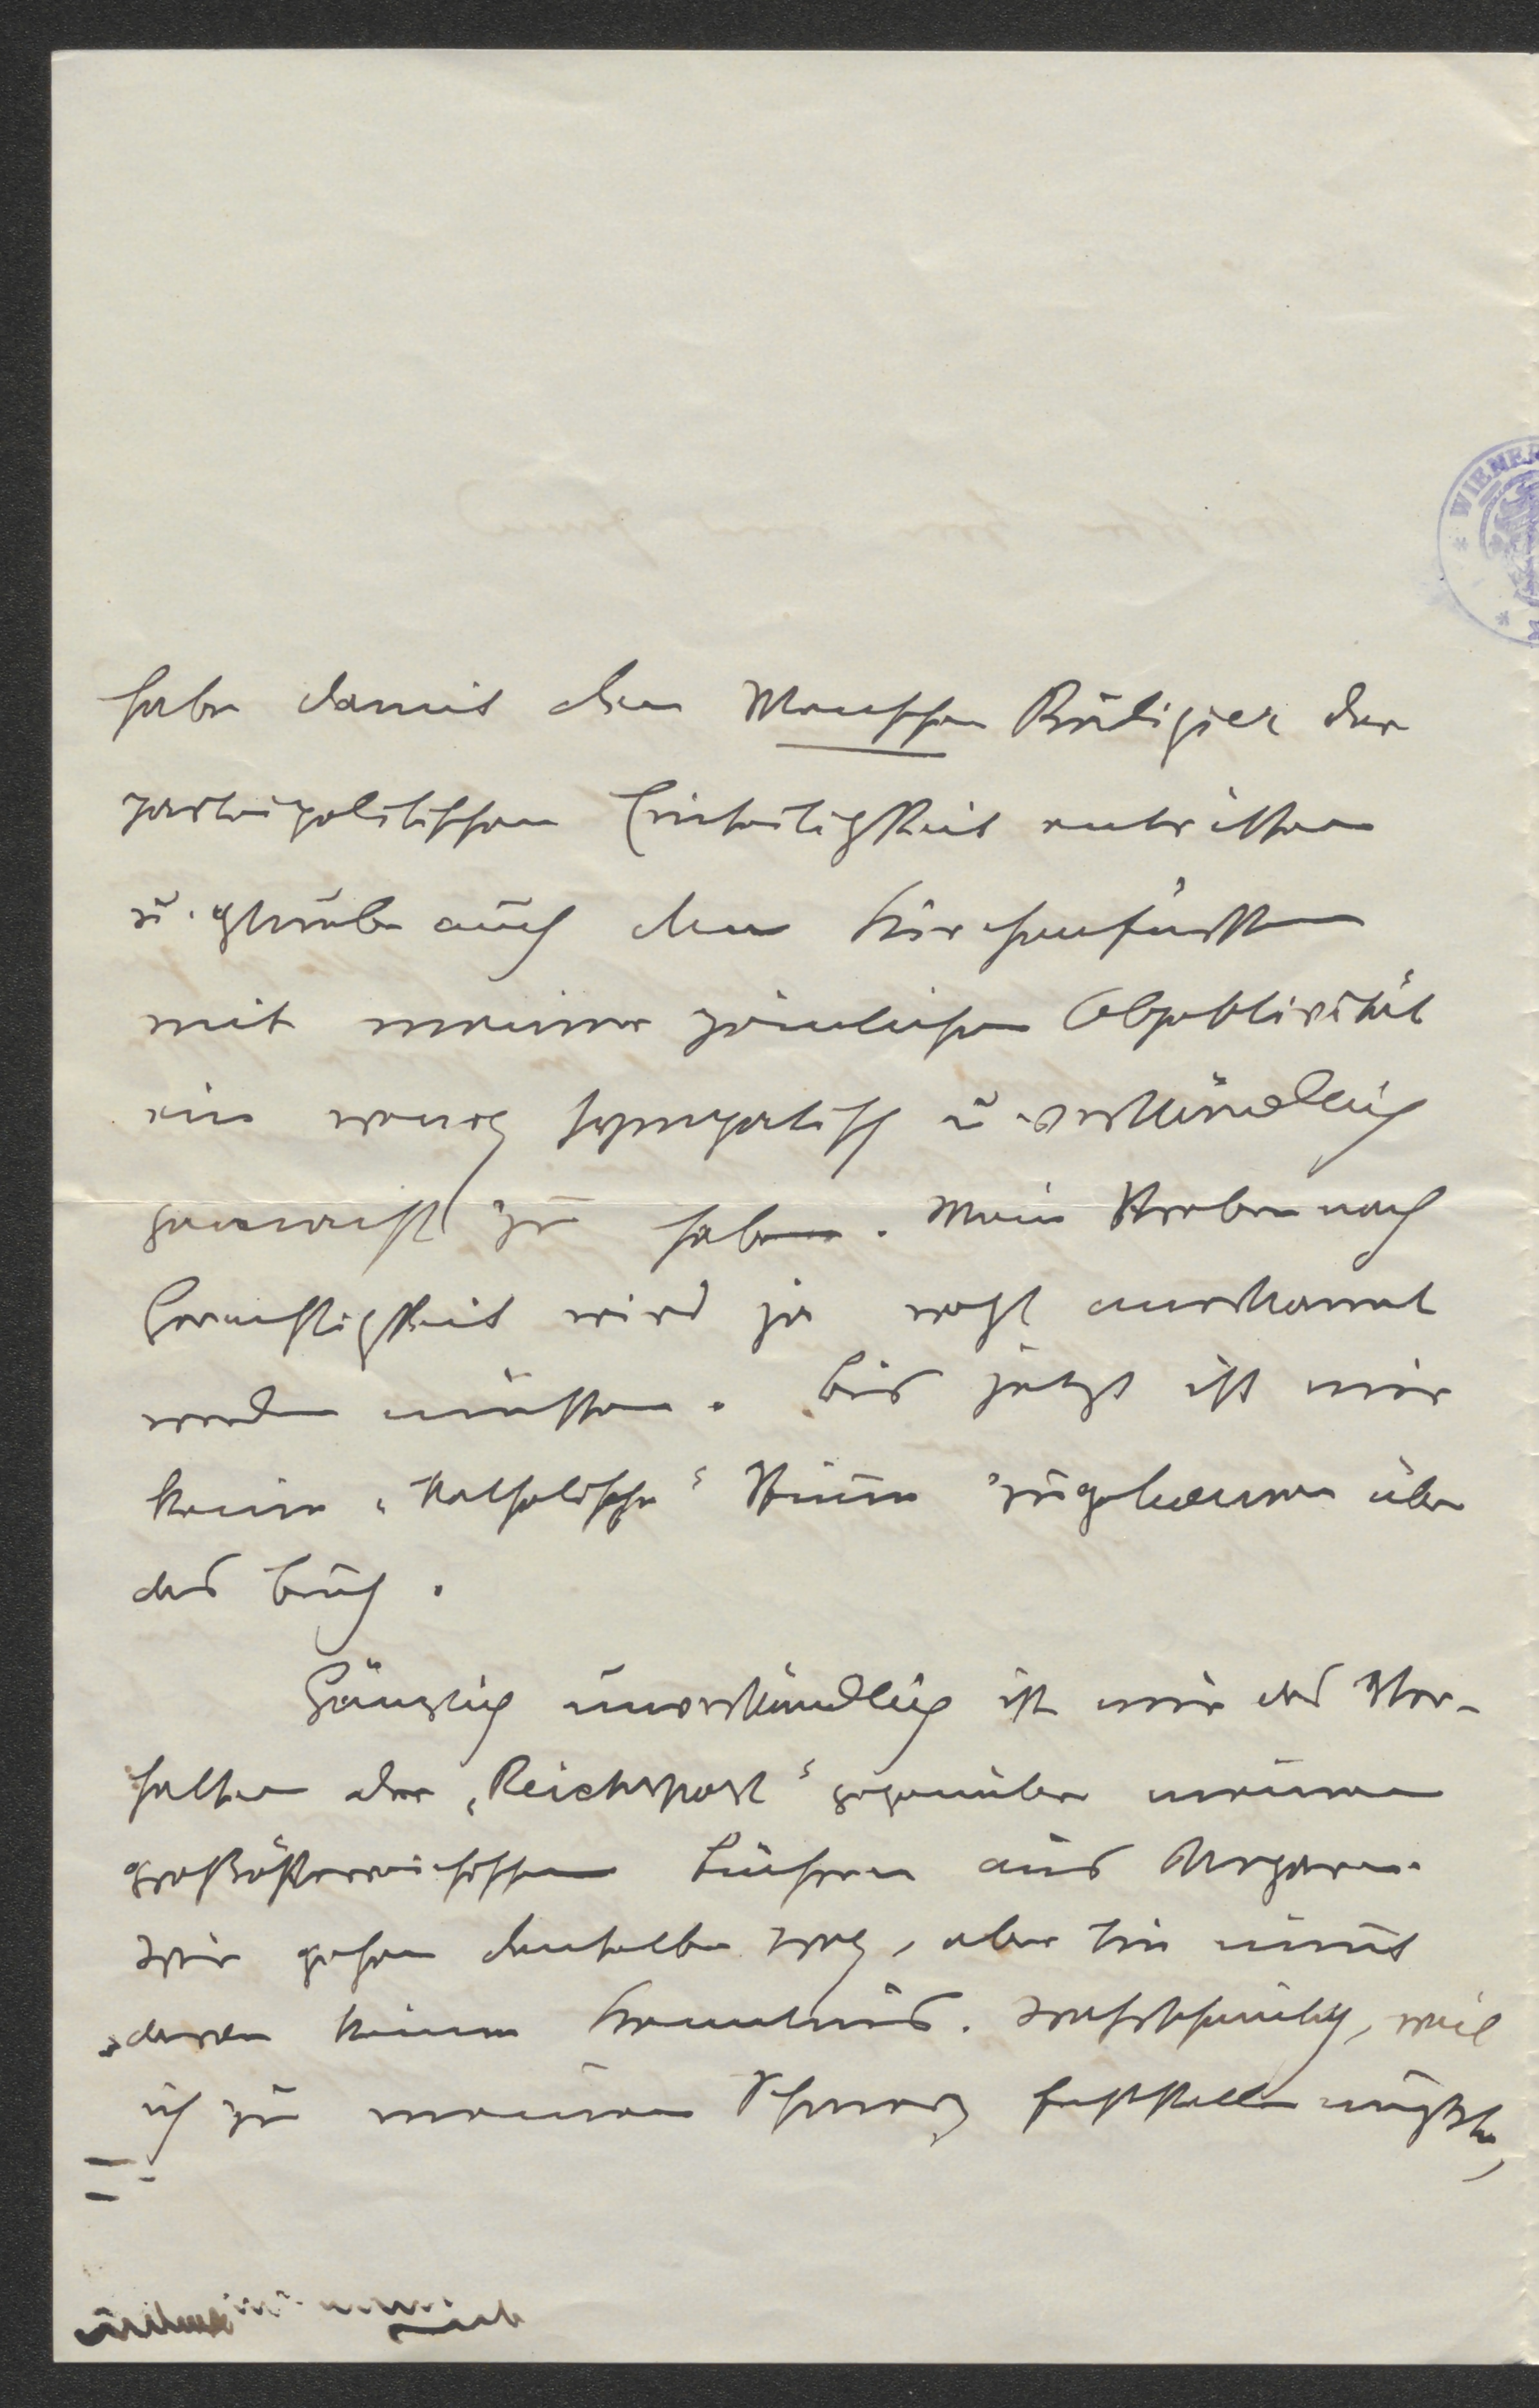 WIENER
habe damit den Menschen Rüdigier der
parteipolitischen Einseitigkeit entrissen
u. glaube auch den Kirchenfürsten
mit meiner peinlichen Objektivität
ein wenig sympatisch u. verständlich
gemacht zu haben. Mein Streben nach
Gerechtigkeit wird ja wohl anerkannt
werden müssen. Bis jetzt ist mir
keine „katholische“ Stimme zugekommen über
das Buch.
Gänzlich unverständlich ist mir das Ver-
halten der „Reichspost“ gegenüber meinen
großösterreichischen Büchern aus Ungarn.
Wir gehen denselben Weg, aber sie nimt
davon keine Kenntnis. Wahrscheinlich, weil
ich zu meinem Schmerz feststellen mußte,